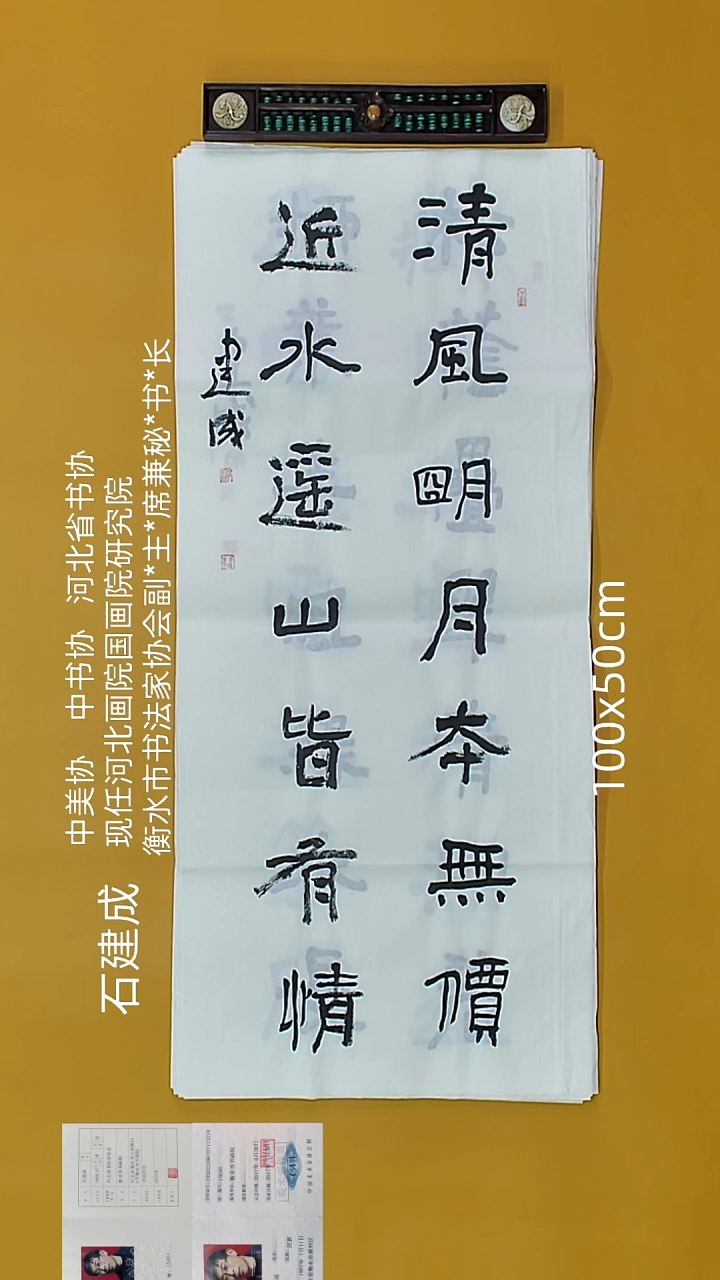 清風朙月夲無價
近水遥山皆有情
建成
石建成
中美协 中书协 河北省书协
现任河北画院国画院研究院
衡水市书法家协会副*主*席兼秘*书*长
100x50cm